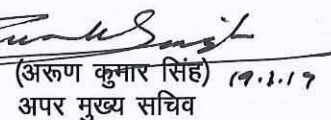 (अरूण कुमार सिंह) 19.2.19
अपर मुख्य सचिव